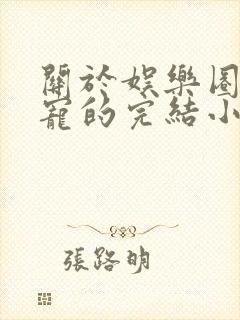 關於娛樂圈
寵的完結小
張路明